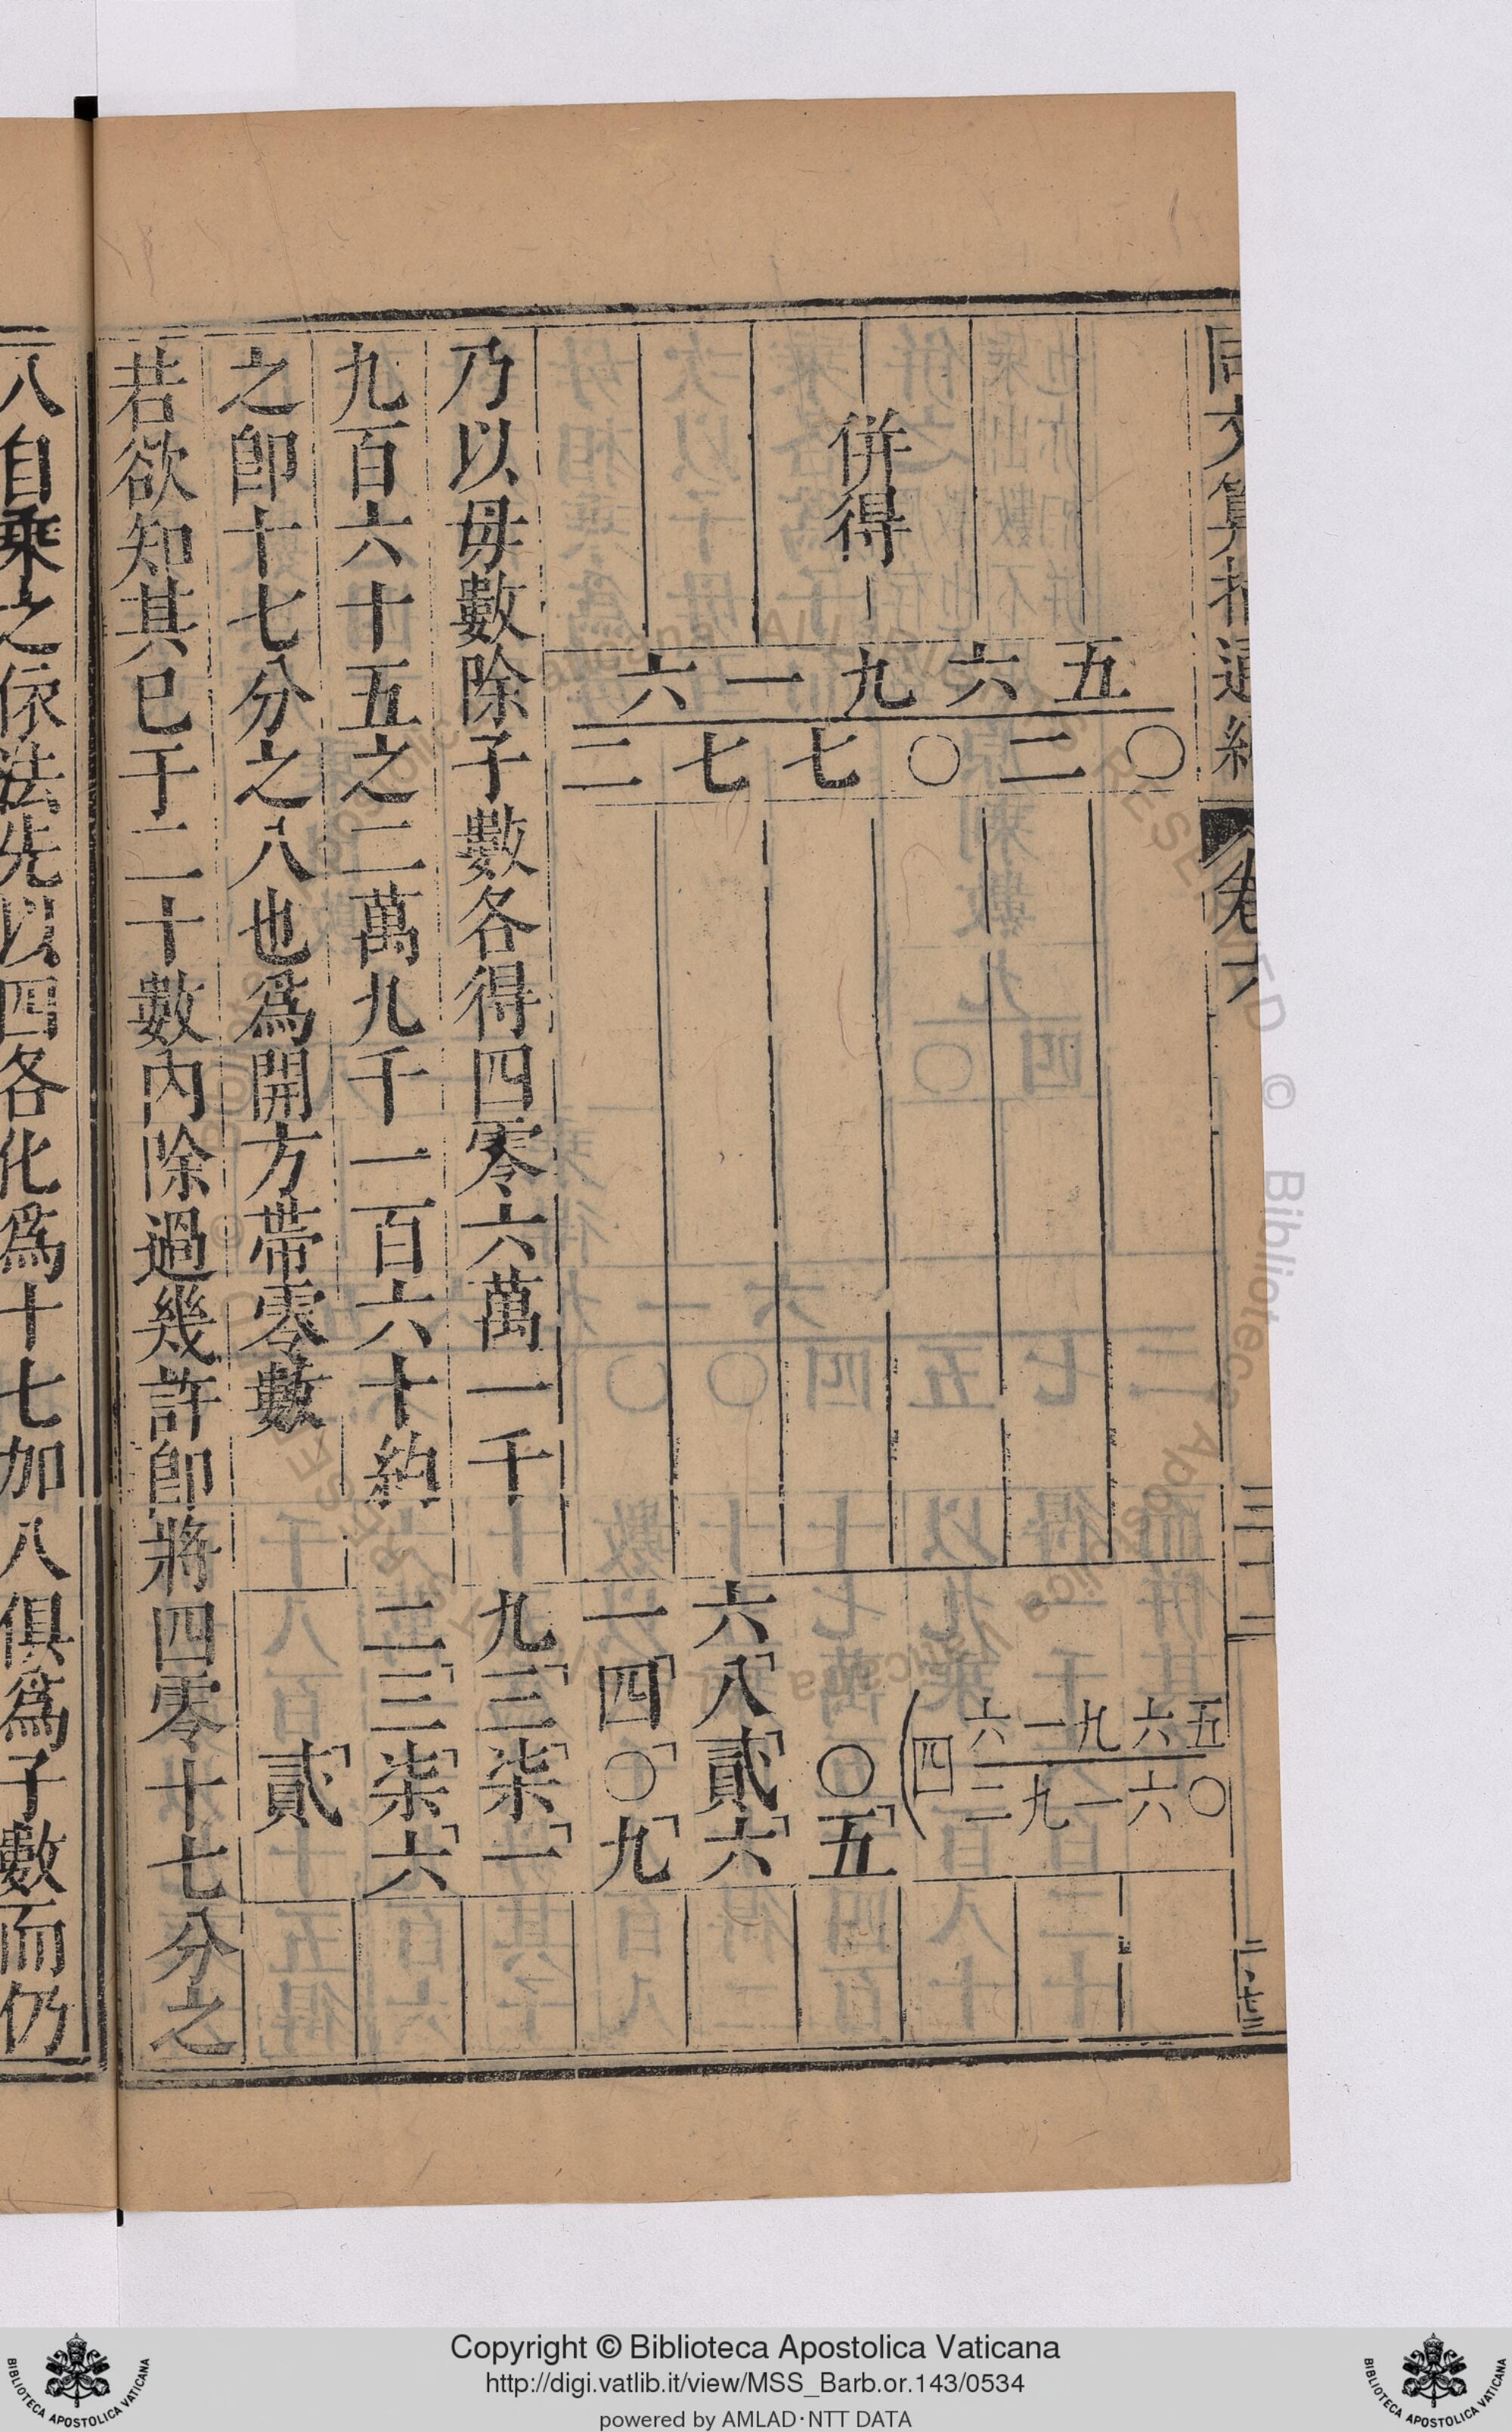 同文算指通編 卷六
併得
六一九六五
二七七〇二〇
六一九六五
四
二九一六〇
〇五
六八貳六
一四〇九
九三柒一
二三柒六
貳
乃以毋數除子數各得四零六萬一千
九百六十五之二萬九千一百六十約
之卽十七分之八也爲開方帶零數
若欲知其巳于二十數內除過幾許卽將四零十七分之
八自乘之依法先以四各化爲十七加八俱爲子數而仍
Copyright © Biblioteca Apostolica Vaticana
http://digi.vatlib.it/view/MSS_Barb.or.143/0534
powered by AMLAD·NTT DATA
BIBLIOTECA APOSTOLICA VATICANA
BIBLIOTECA APOSTOLICA VATICANA